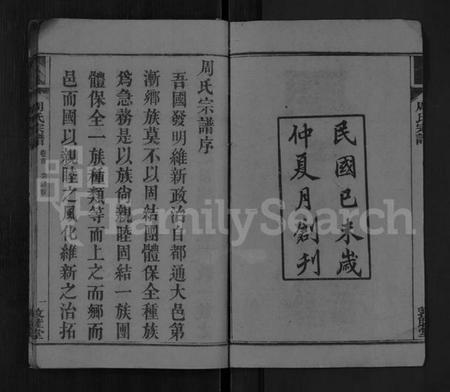 民國己未歲
仲夏月創刊
周氏宗譜
周氏宗譜序
吾國發明維新政治自都通大邑第
漸鄉族莫不以固結團體保全種族
爲急務是以族尙親睦固結一族團
體保全一族種類等而上之而鄉而
邑而國以親睦之風化維新之治拓
周氏宗譜
FamilySearch